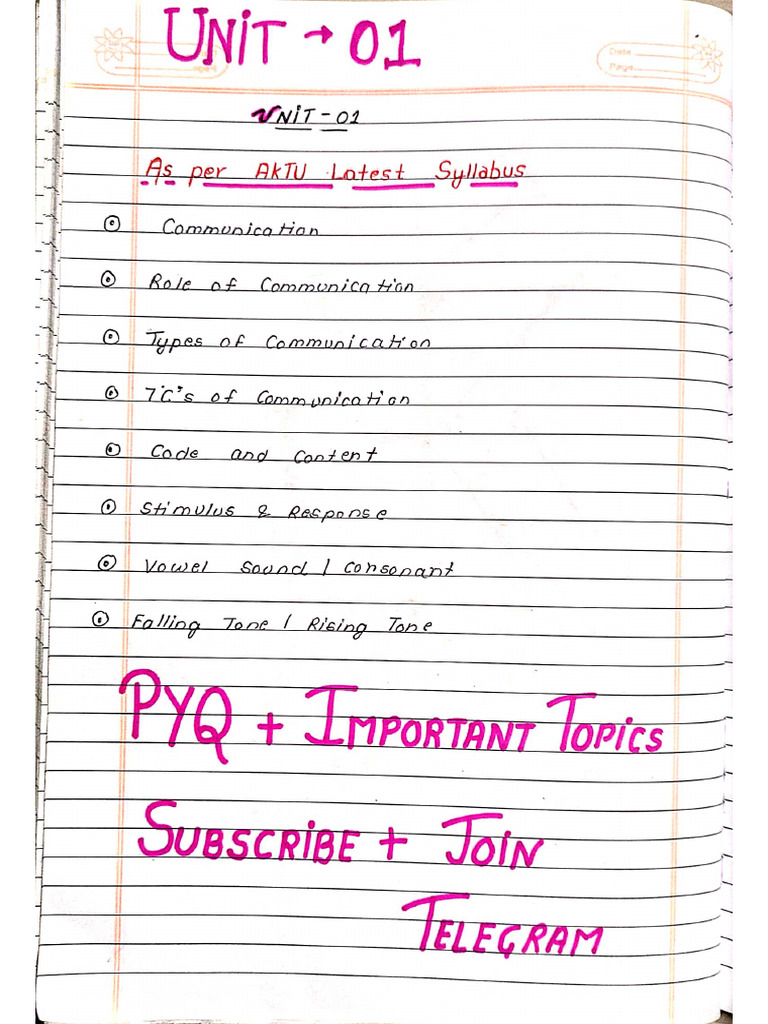 UNiT → 01
UNiT - 01
As per AKTU Latest Syllabus
Communication
Role of Communication
Types of Communication
7'C's of Communication
Code and Content
Stimulus & Response
Vowel Sound / Consonant
Falling Tone / Rising Tone
PYQ + IMPORTANT TOPiCS
SUBSCRiBE + JOiN
TELEGRAM
Date
Page